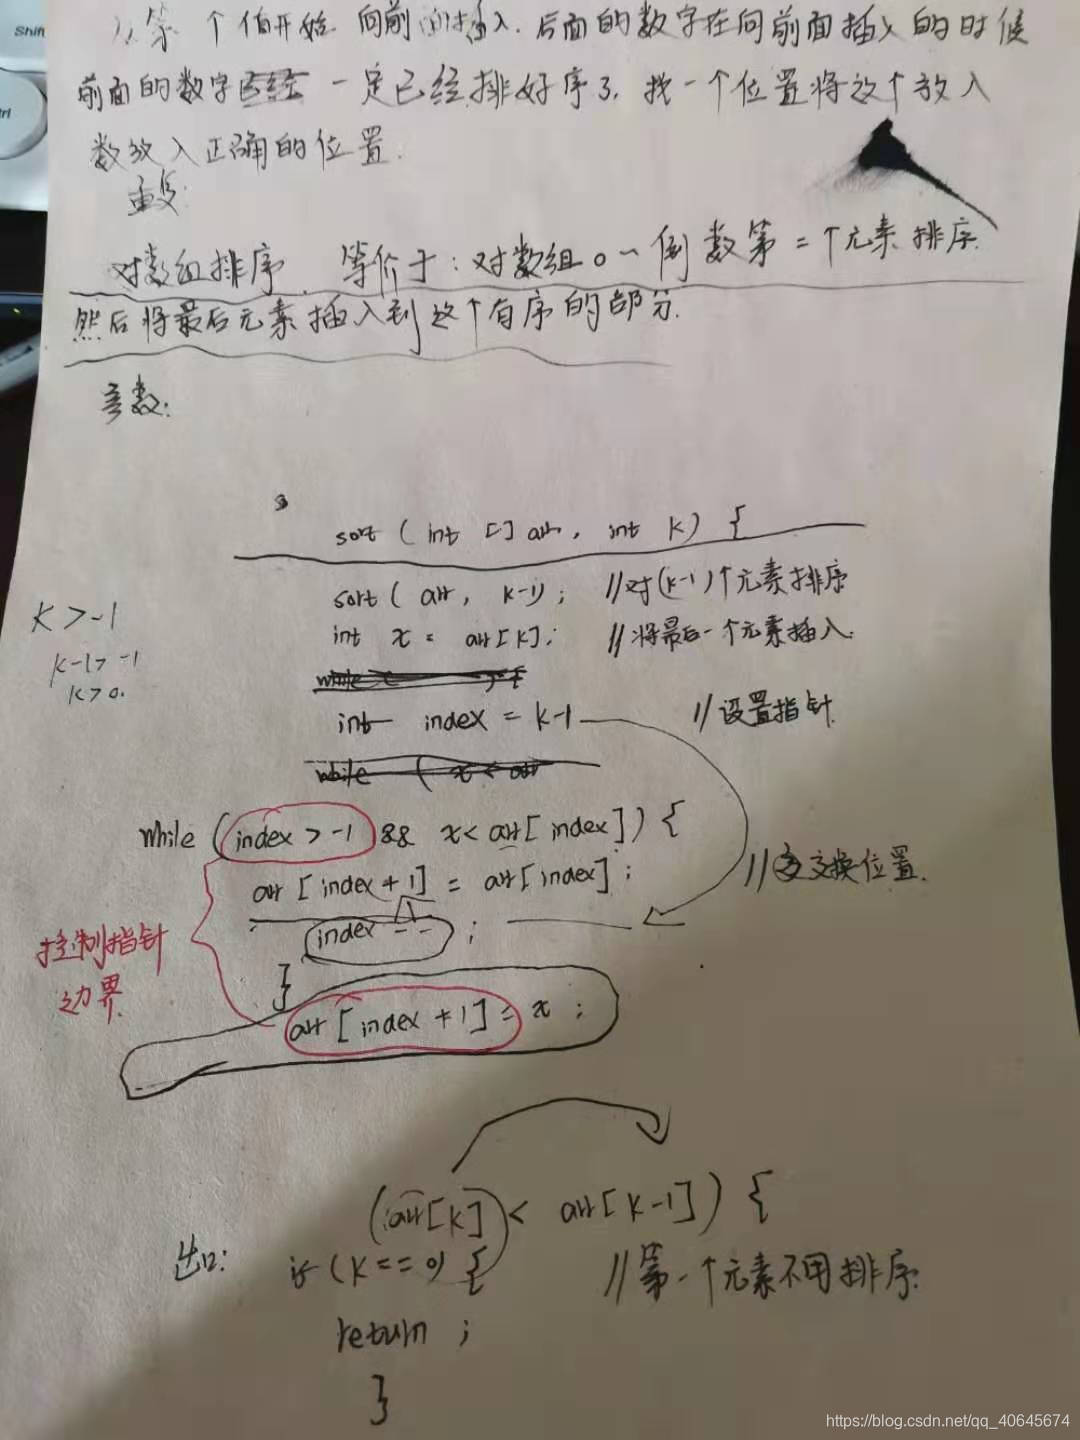 Shift
trl
从第 个值开始 向前 插入.后面的数字在向前面插入的时候
前面的数字 一定已经排好序了.找一个位置将这个放入
数放入正确的位置.
重复:
对数组排序. 等价于:对数组0~倒数第二个元素排序.
然后将最后元素插入到这个有序的部分.
参数:
sort (int [] arr, int k) {
sort ( arr, k-1); //对(k-1)个元素排序
k > -1
int x = arr[k]; //将最后一个元素插入.
k-1 > -1
k > 0.
int index = k-1 //设置指针
while (index > -1 && x < arr[index]) {
arr [index+1] = arr[index]; //交换位置.
控制指针
边界
index -- ;
}
arr [index +1] = x ;
(arr[k] < arr[k-1]) {
出口: if (k == 0) { //第一个元素不用排序.
return ;
}
https://blog.csdn.net/qq_40645674